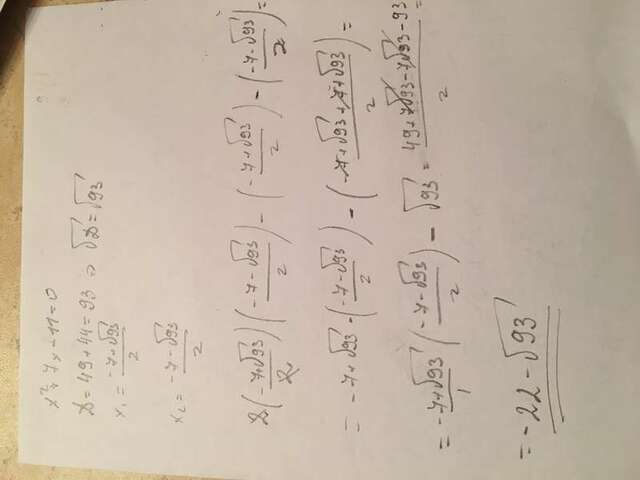 x²+7x-11=0
D=49+44=93 => √D=√93
x₁ = (-7+√93)/2
x₂ = (-7-√93)/2
2((-7+√93)/2)((-7-√93)/2) - ((-7+√93)/2) - ((-7-√93)/2) =
= -7+√93 · ((-7-√93)/2) - ((-7+√93+7+√93)/2) =
= (-7+√93)/1 ((-7-√93)/2) - √93 = (49+7√93-7√93-93)/2 =
= -22-√93